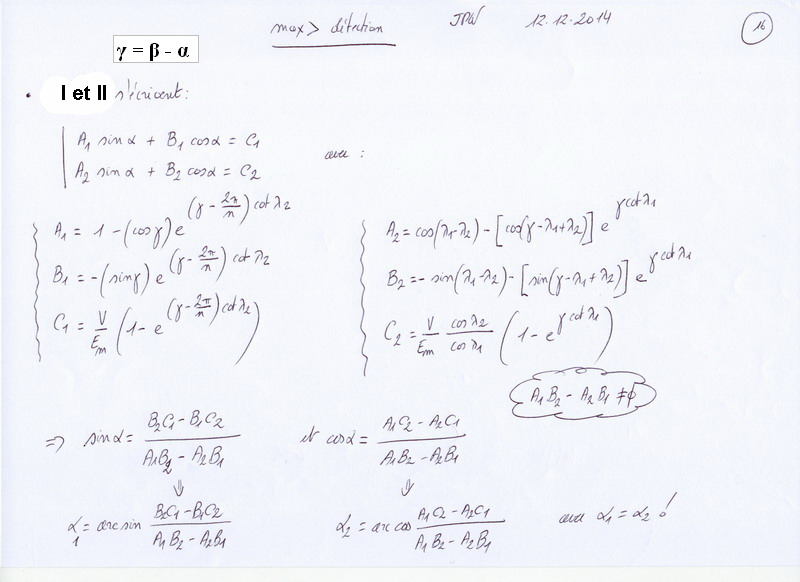 max > détection JPW 12.12.2014 16
γ = β - α
• I et II s'écrivent:
A₁ sinα + B₁ cosα = C₁
A₂ sinα + B₂ cosα = C₂ avec :
A₁ = 1 - (cosγ) e^((γ - 2π/n) cot λ₂)
B₁ = -(sinγ) e^((γ - 2π/n) cot λ₂)
C₁ = V/Em (1 - e^((γ - 2π/n) cot λ₂))
A₂ = cos(λ₁-λ₂) - [cos(γ-λ₁+λ₂)] e^(γ cot λ₁)
B₂ = - sin(λ₁-λ₂) - [sin(γ-λ₁+λ₂)] e^(γ cot λ₁)
C₂ = V/Em cosλ₂/cosλ₁ (1 - e^(γ cot λ₁))
A₁B₂ - A₂B₁ ≠ 0
=> sinα = (B₂C₁ - B₁C₂)/(A₁B₂ - A₂B₁) et cosα = (A₁C₂ - A₂C₁)/(A₁B₂ - A₂B₁)
⇓ ⇓
α₁ = arc sin (B₂C₁ - B₁C₂)/(A₁B₂ - A₂B₁) α₂ = arc cos (A₁C₂ - A₂C₁)/(A₁B₂ - A₂B₁) avec α₁ = α₂ !